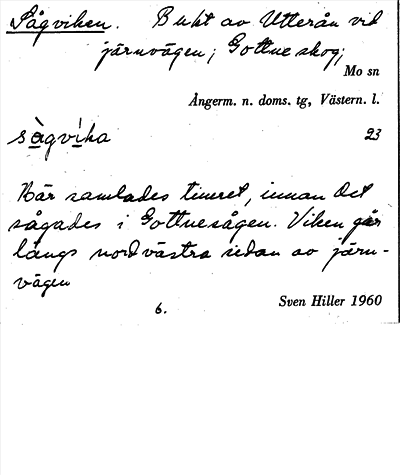 Sågviken. Bukt av Utterån vid
järnvägen; Gottne skog;
Mo sn
Ångerm. n. doms. tg, Västern. l.
sàgvika 23
Här samlades timret, innan det
sågades i Gottnesågen. Viken går
längs nordvästra sidan av järn-
vägen
6. Sven Hiller 1960